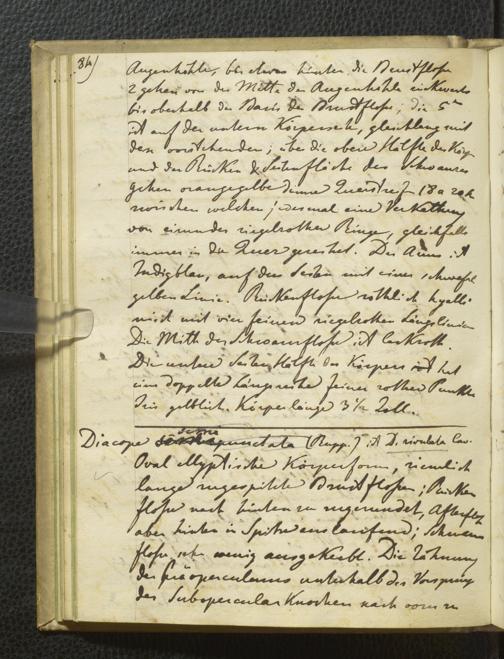 84)
Augenhöhle, bis etwas hinter die Brustflosse
2 gehen von der Mitte der Augenhöhle einwärts
bis oberhalb der Basis der Brustflosse; die 5te
ist auf der untern Körperseite, gleichlang mit
den vorstehenden; über die obere Hälfte des Körpers
und den Rücken & Seitenfläche des Schwanzes
gehen orangegelbe dünne Querstreifen 18 a 20
zwischen welchen jedesmal eine Verkettung
von einander ziegelrother Ringe, gleichfalls
immer in die Quer gereihet. Der Anus ist
Indigblau, auf den Seiten mit einer schwefel
gelben Linie. Rückenflosse röthlich hyali
nisch mit vier feinen ziegelrothen Längslinien
Die Mitte der Schwanzflosse ist lackroth.
Die untere Seiten Hälfte des Körpers hat
eine doppelte Längsreihe feiner rother Punkte
Iris gelblich. Körperlänge 3 1/2 Zoll.
Diacope punctata (Rupp.) ist D. rivulata Cuv.
Oval elliptische Körperform, ziemlich
lange zugespitzte Brustflossen; Rücken
flosse nach hinten zu zugerundet, Afterflosse
aber hinten in Spitze auslaufend; Schwanz
flosse sehr wenig ausgekerbt. Die Zähnung
des Präoperculums unterhalb des Vorsprung
des Subopercular Knochen nach vorn zu